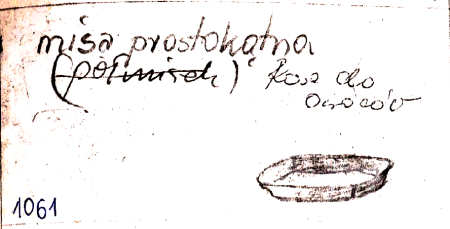 misa prostokątna
(półmisek) Kosz do
owoców
1061